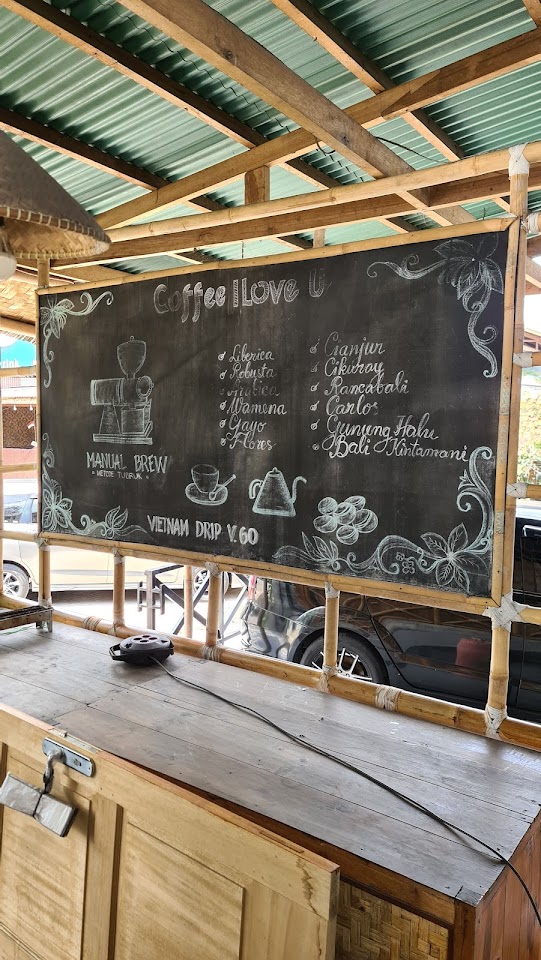 Coffee I Love U
Liberica
Robusta
Arabica
Wamena
Gayo
Flores
Cianjur
Cikuray
Rancabali
Carlos
Gunung Halu
Bali Kintamani
MANUAL BREW
- METODE TUBRUK -
VIETNAM DRIP V.60